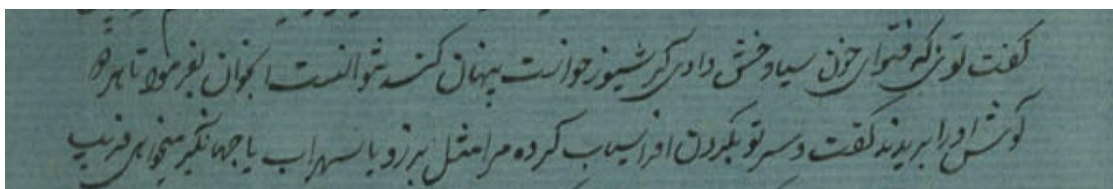 گفت توئی که فتوای خون سیاوخش دادی گرشیوز خواست پنهان کند نتوانست آنجوان بفرمود تا هر دو
گوش او را بریدند گفت دست تو بگردن افراسیاب کرده مرا مثل برزو یا سهراب یا جهانگیر میخواهی فریب